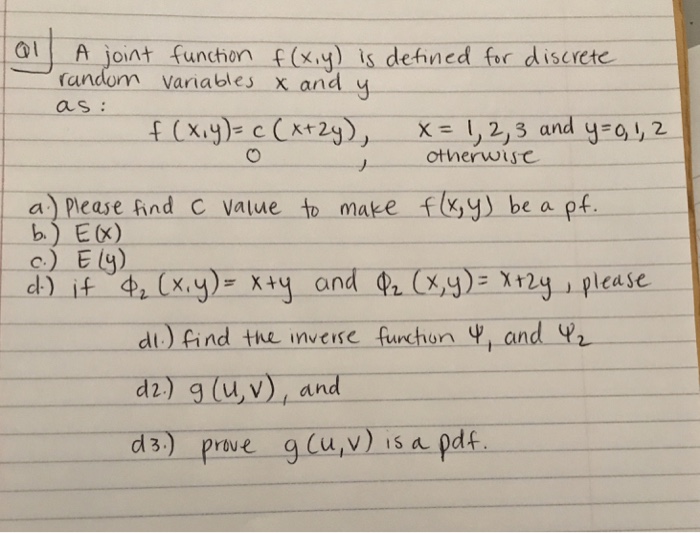 Q1 A joint function f(x,y) is defined for discrete
random variables x and y
as:
f(x,y)= c(x+2y), x = 1,2,3 and y=0,1,2
0 , otherwise
a.) Please find C value to make f(x,y) be a pf.
b.) E(x)
c.) E(y)
d.) if ϕ₂(x,y)= x+y and ϕ₂(x,y)= x+2y, please
d1.) find the inverse function Ψ₁ and Ψ₂
d2.) g(u,v), and
d3.) prove g(u,v) is a pdf.